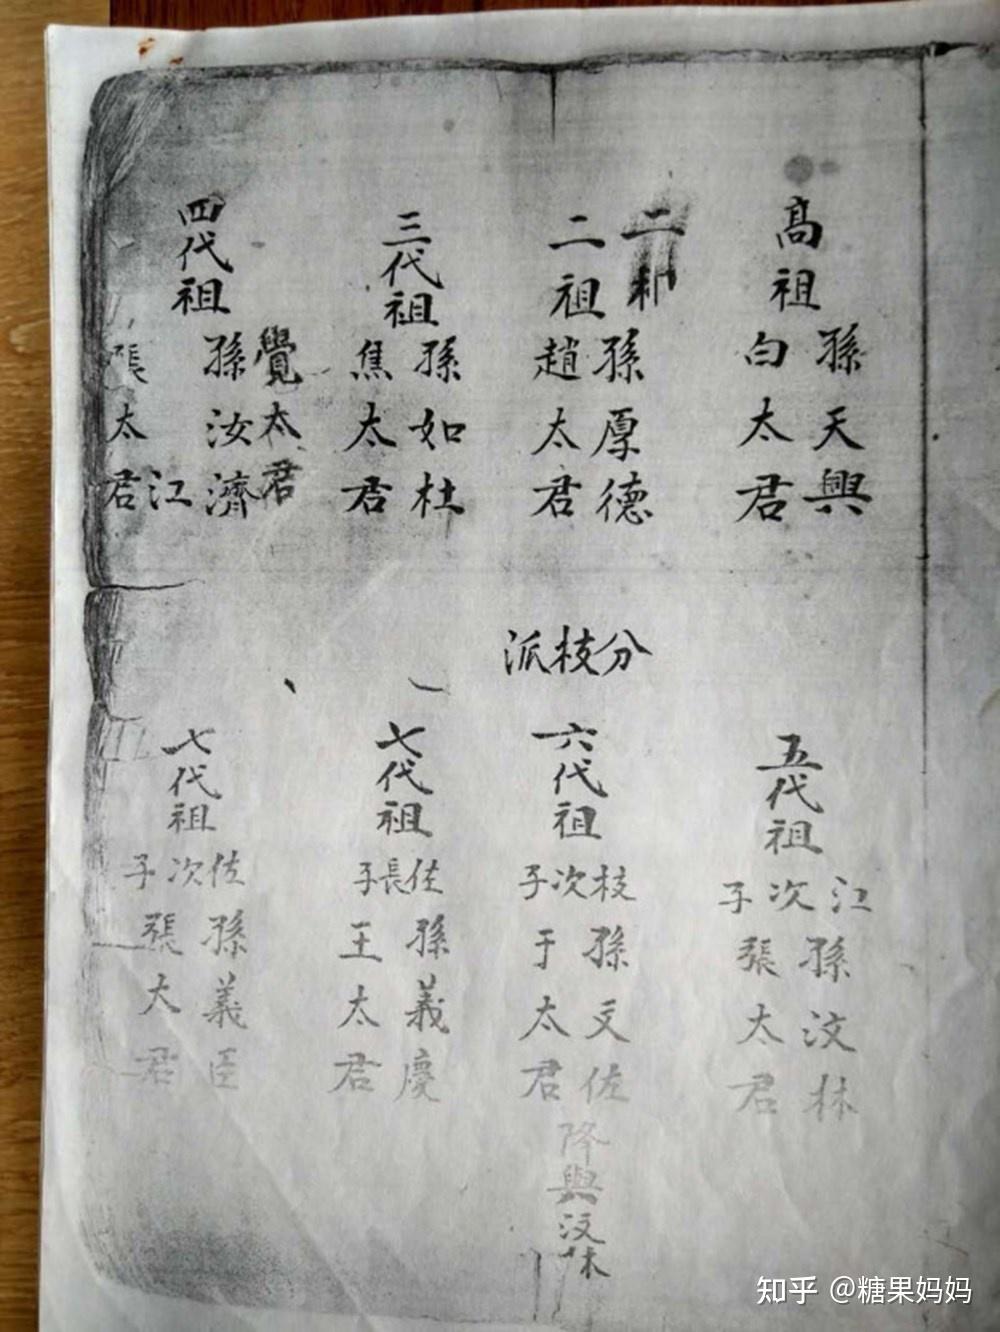 高祖
孫天興
白太君
二祖
二祖
孫厚德
趙太君
三代祖
孫如杜
焦太君
四代祖
覺太君
孫汝濟
江
張太君
分枝派
五代祖
江次子
孫汶林
張太君
六代祖
枝次子
孫文佐
于太君
降與汶林
七代祖
佐長子
孫義慶
王太君
七代祖
佐次子
孫義臣
張大君
知乎 @糖果妈妈